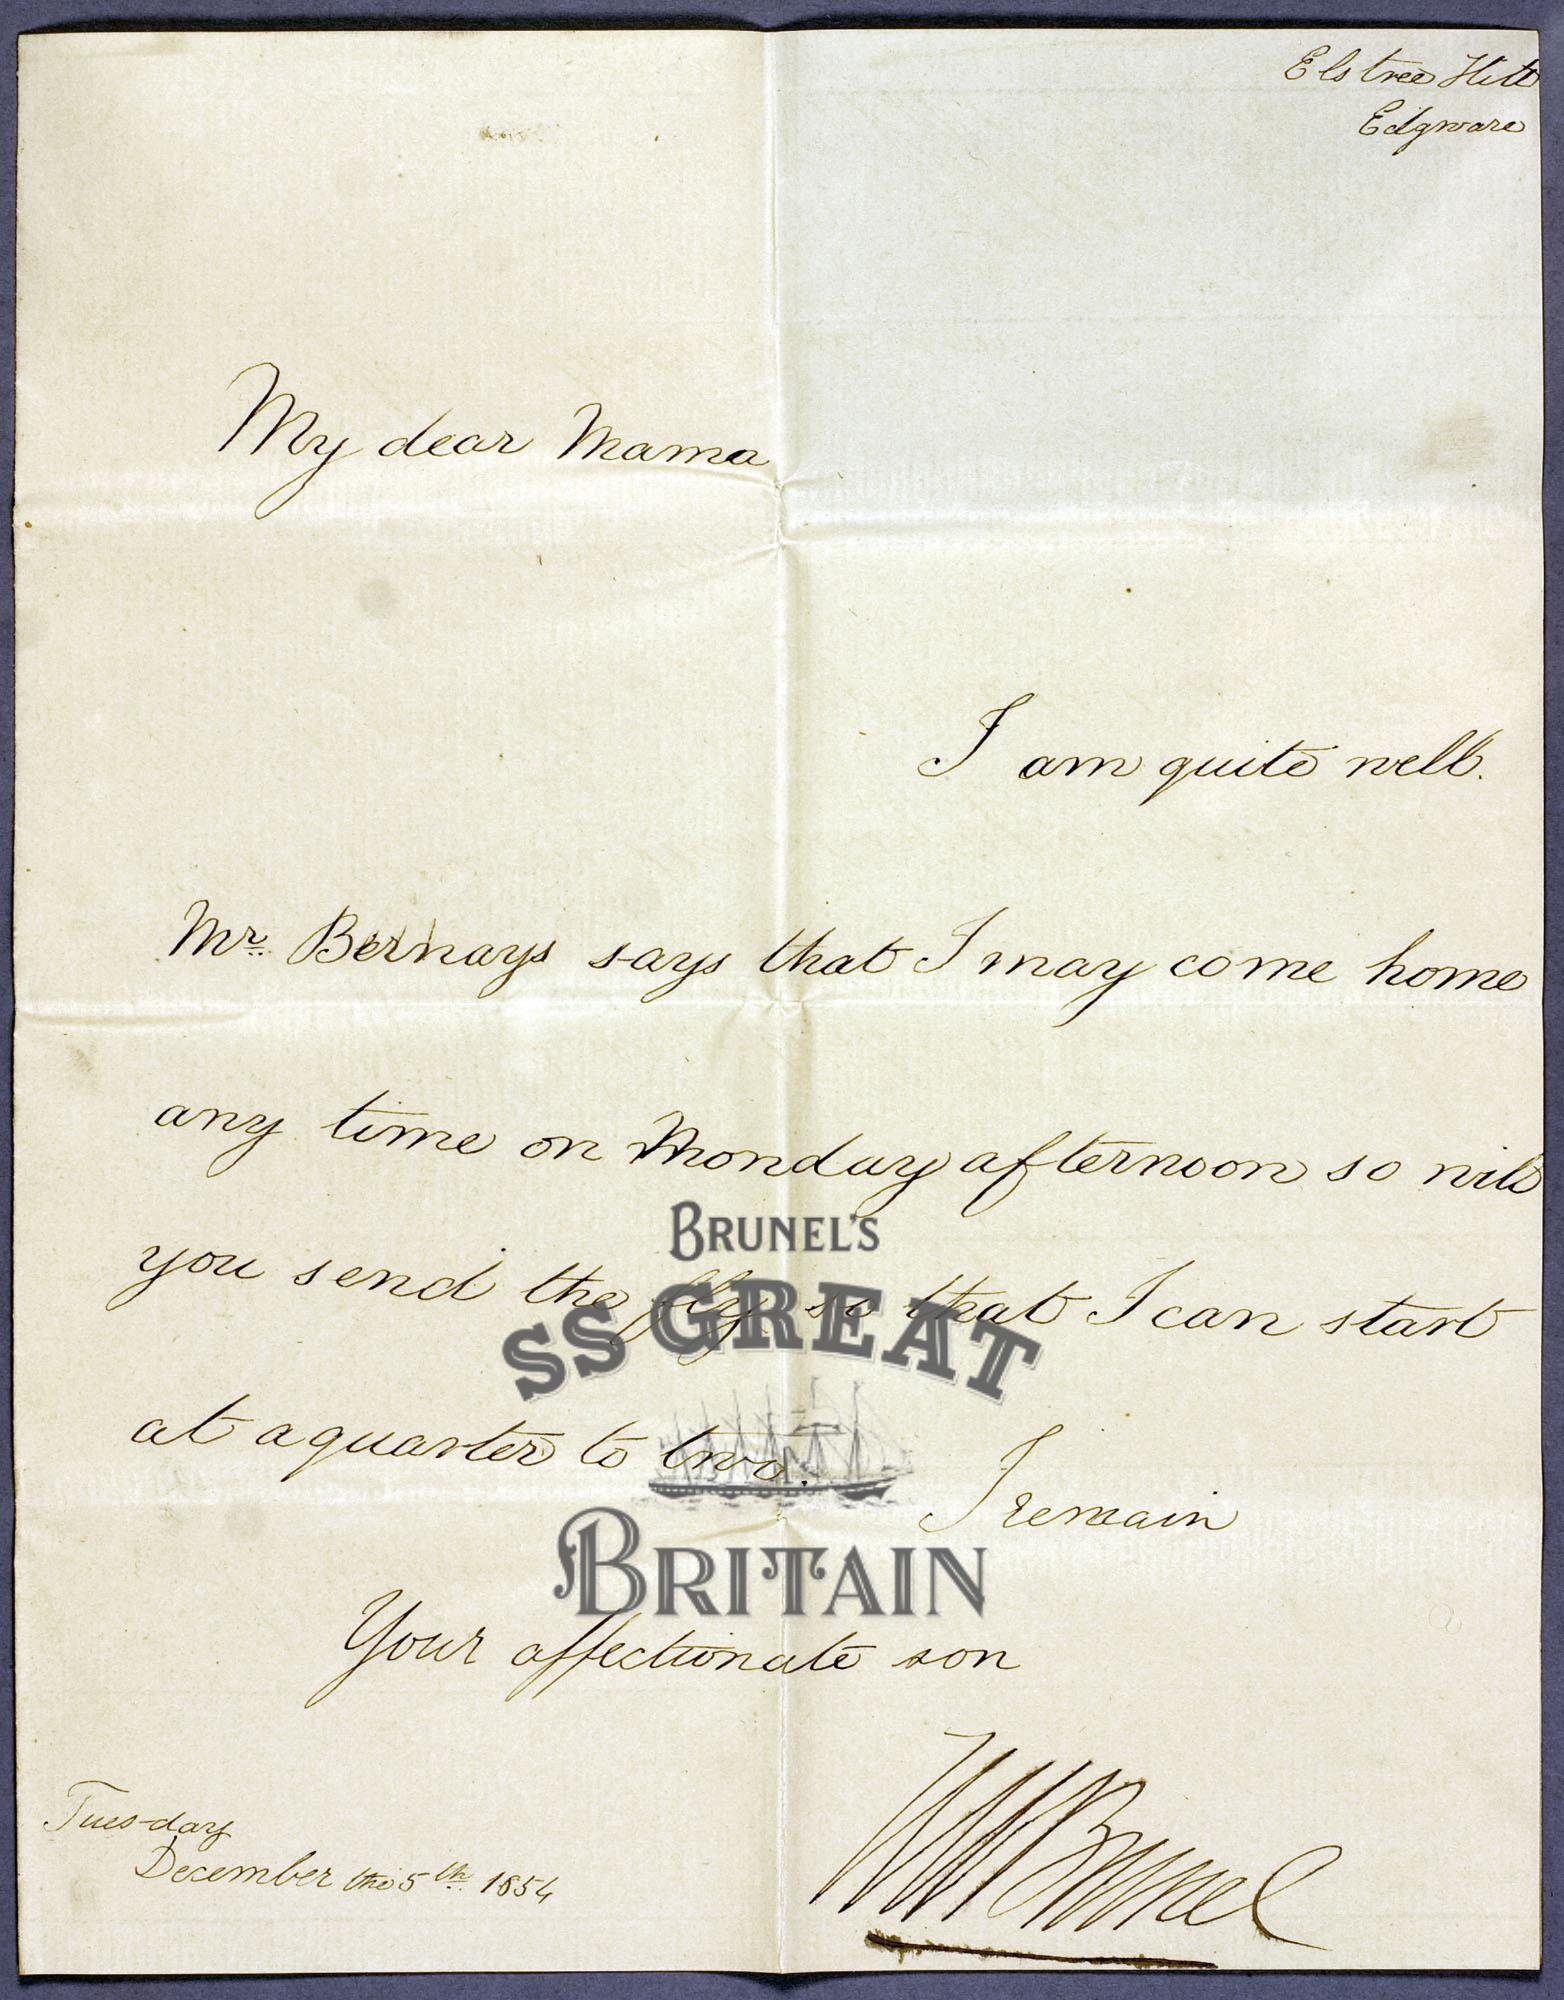 Elstree Hill
Edgware
My dear Mama
I am quite well.
Mr. Bernays says that I may come home
any time on Monday afternoon so will
you send the fly so that I can start
at a quarter to two.
I remain
Your affectionate son
Brunel
Tuesday
December the 5th 1854
BRUNEL'S
SS GREAT
BRITAIN